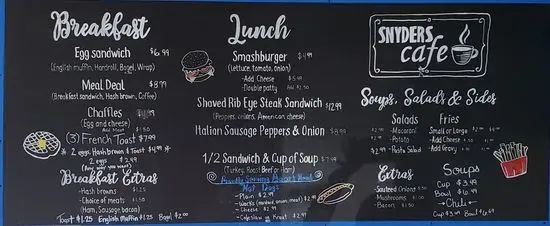 Breakfast
Egg sandwich $6.99
(English muffin, Hardroll, Bagel, Wrap)
Meal Deal $8.99
(Breakfast sandwich, Hash brown, Coffee)
Chaffles
(Egg and cheese)
Add Meat $1.50
(3) French Toast $7.99
* 2 eggs, Hash brown & Toast $4.99 *
2 eggs $2.99
(Any way you want)
Breakfast Extras
-Hash browns $1.25
-Choice of meats $1.50
(Ham, Sausage, bacon)
Toast $1.25 English Muffin $1.25 Bagel $2.00
Lunch
Smashburger $4.99
(lettuce, tomato, onion)
-Add Cheese
-Double patty Add $1.50
Shaved Rib Eye Steak Sandwich $12.99
(Peppers, onions, American cheese)
Italian Sausage Peppers & Onion $8.99
1/2 Sandwich & Cup of Soup $7.99
(Turkey, Roast Beef or Ham)
Hot Dogs
-Plain $2.
-Works (mustard, onion, meat) $2.99
-Cheese $2.99
-Coleslaw or Kraut $2.99
SNYDERS
cafe
Soups, Salads & Sides
Salads
-Macaroni
-Potato
-Pasta Salad
Fries
Small or Large
-Add Cheese
-Add Gravy
Extras
-Sauteed Onions
-Mushrooms $1.00
-Bacon $1.50
Soups
Cup $3.99
Bowl $6.99
-Chili-
Cup $3.99 Bowl $6.99